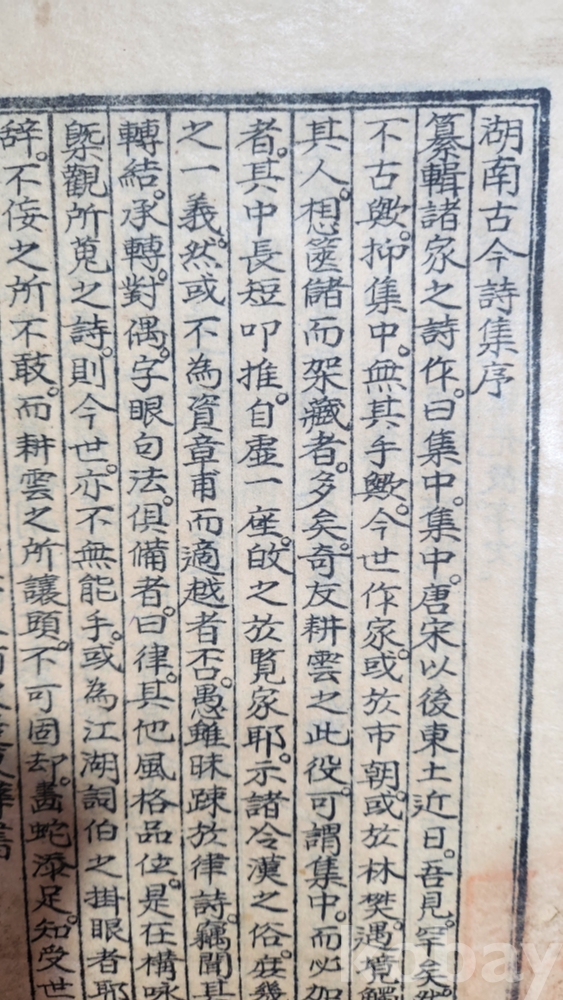 湖南古今詩集序
纂輯諸家之詩作。曰集中。集中。唐宋以後東土近日。吾見。罕矣。
不古歟。抑集中。無其手歟。今世作家。或於市朝。或於林樊。遇境觸
其人。想篋儲而架藏者。多矣。奇友耕雲之此役。可謂集中。而必如
者。其中長短叩推。自虛一座。故之於覽家耶。示諸冷漢之俗。庶幾
之一義。然或不為資章甫而適越者否。愚雖昧踈於律詩。竊聞其
轉結。承轉。對偶。字眼句法。俱備者。曰律。其他風格品位。是在構咏
槩觀所蒐之詩。則今世。亦不無能手。或為江湖詞伯之掛眼者耶
辭。不佞之所不敢。而耕雲之所讓頭。不可固却。畵蛇添足。知受世
bbay